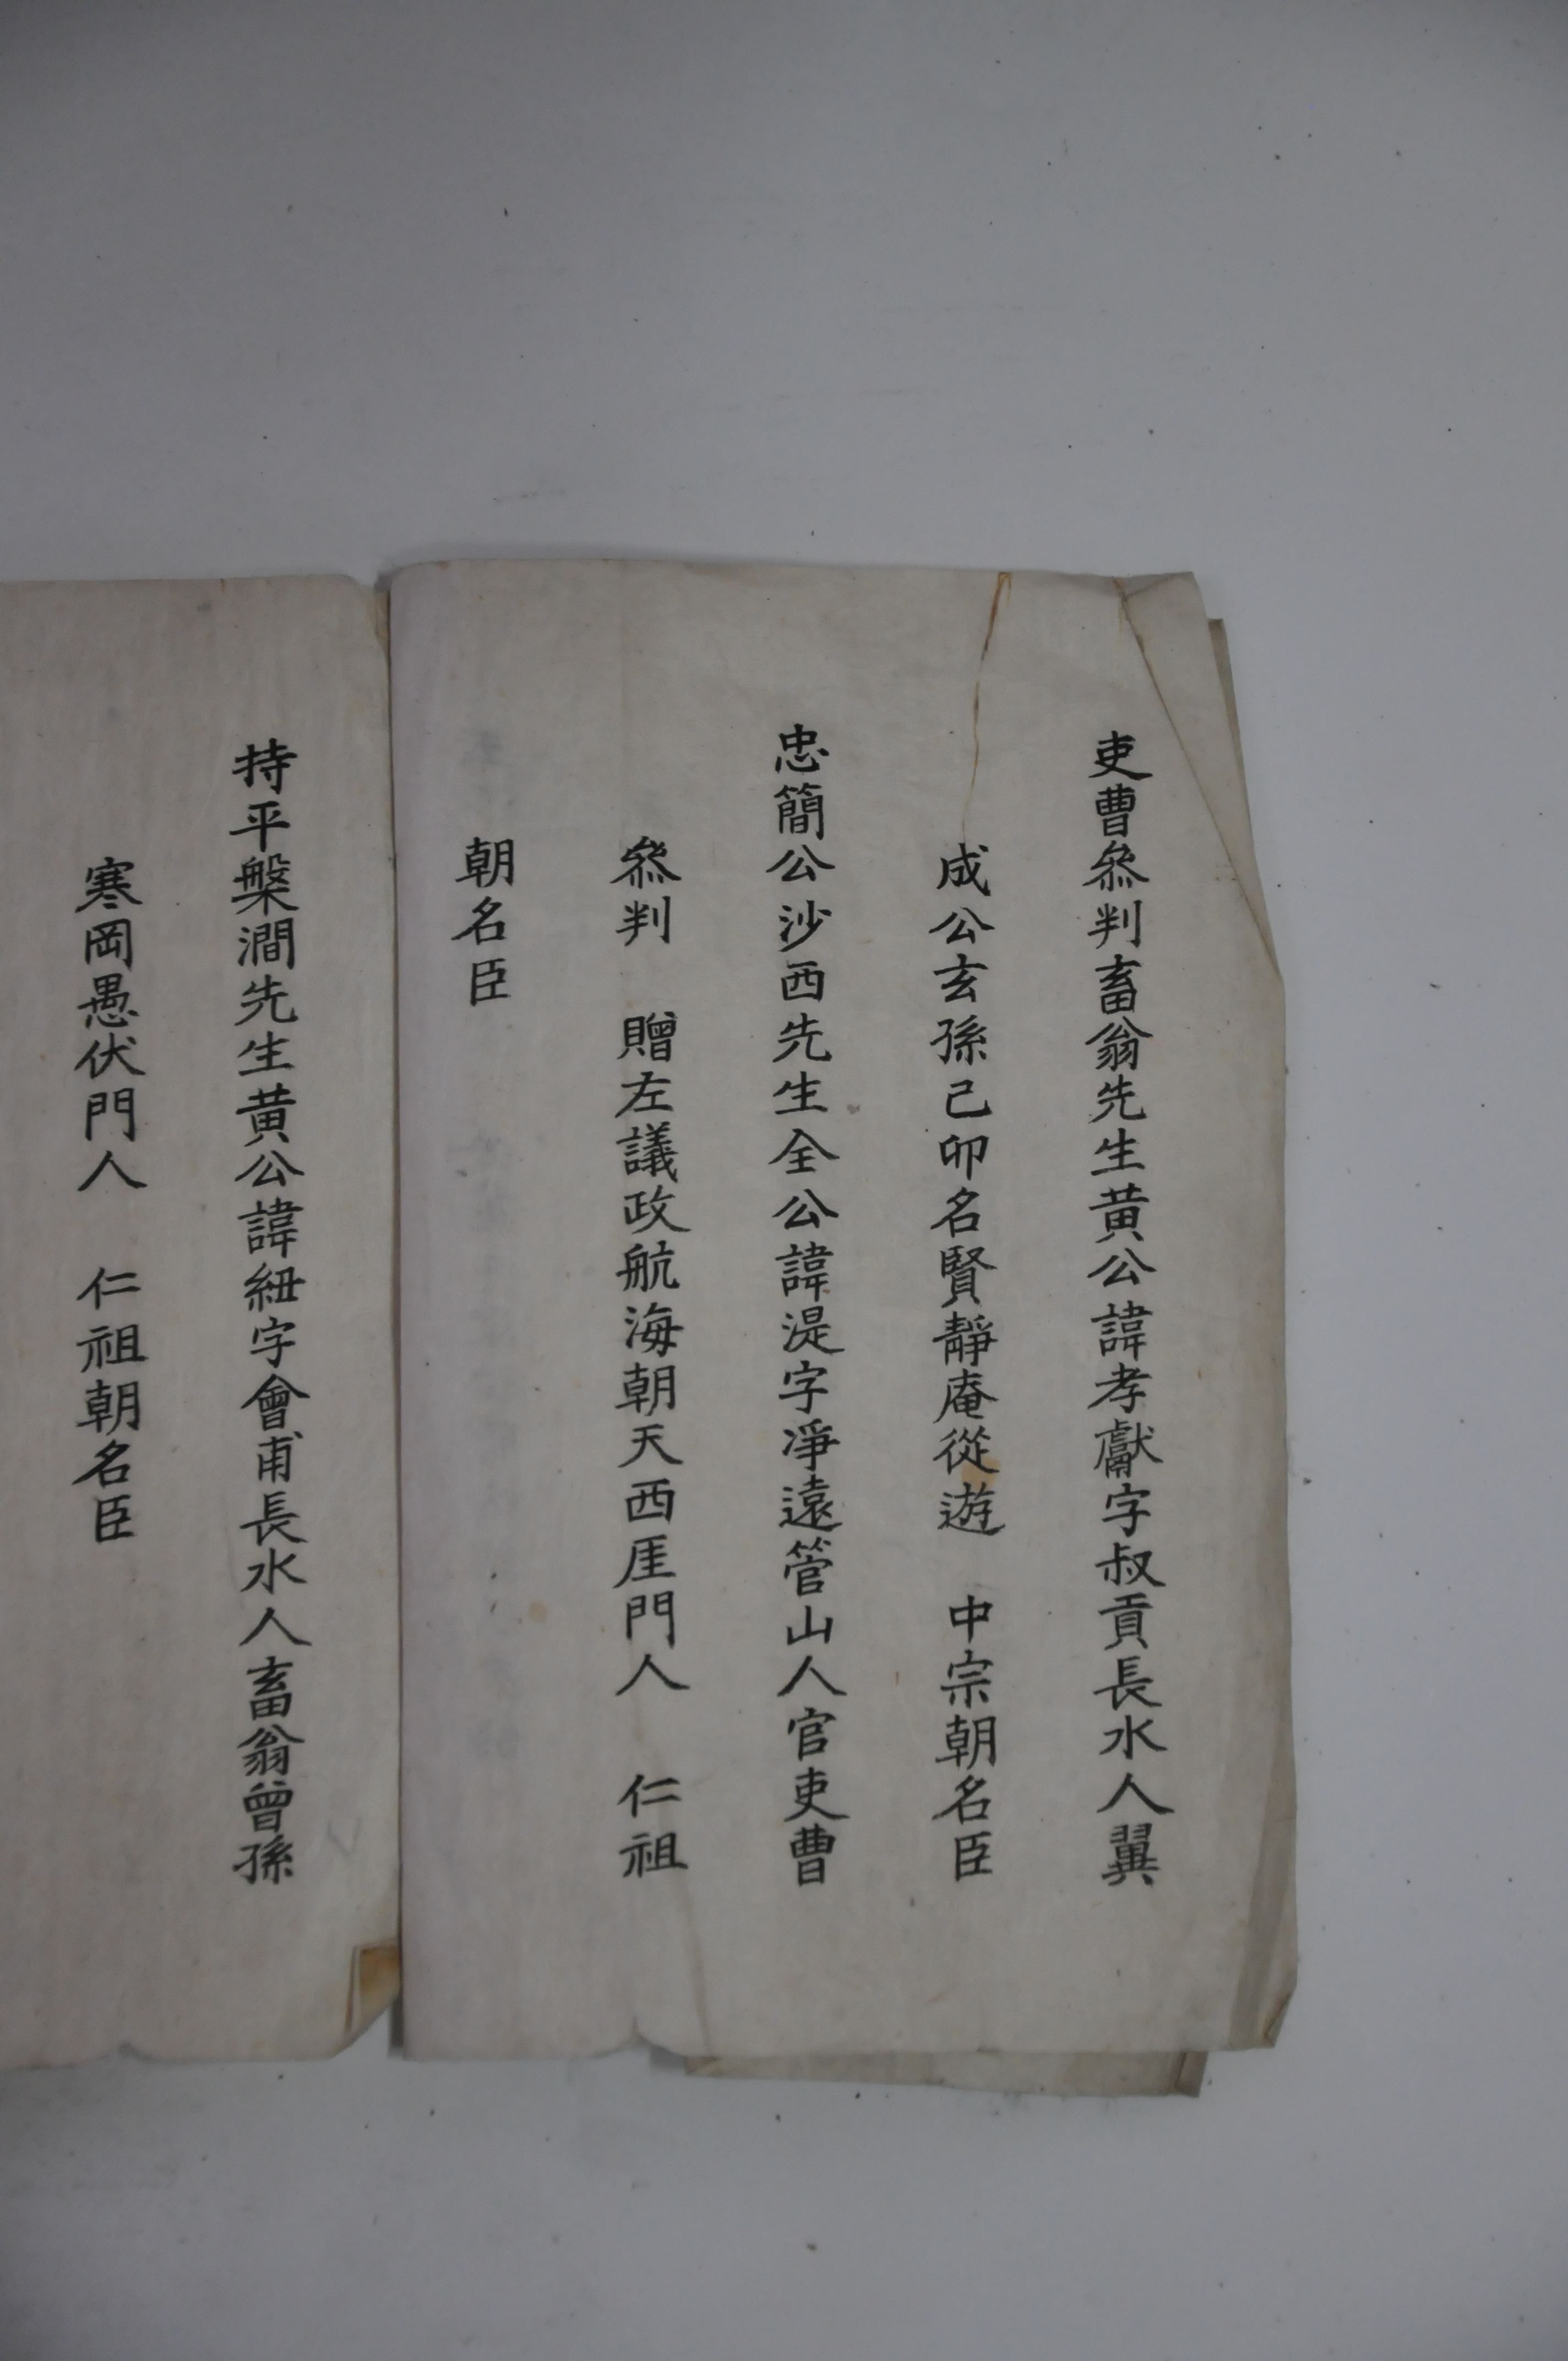 吏曹叅判畜翁先生黃公諱孝獻字叔貢長水人翼
成公玄孫己卯名賢靜庵從遊 中宗朝名臣
忠簡公沙西先生全公諱湜字淨遠管山人官吏曹
叅判 贈左議政航海朝天西厓門人 仁祖
朝名臣
持平槃澗先生黃公諱紐字會甫長水人畜翁曾孫
寒岡愚伏門人 仁祖朝名臣